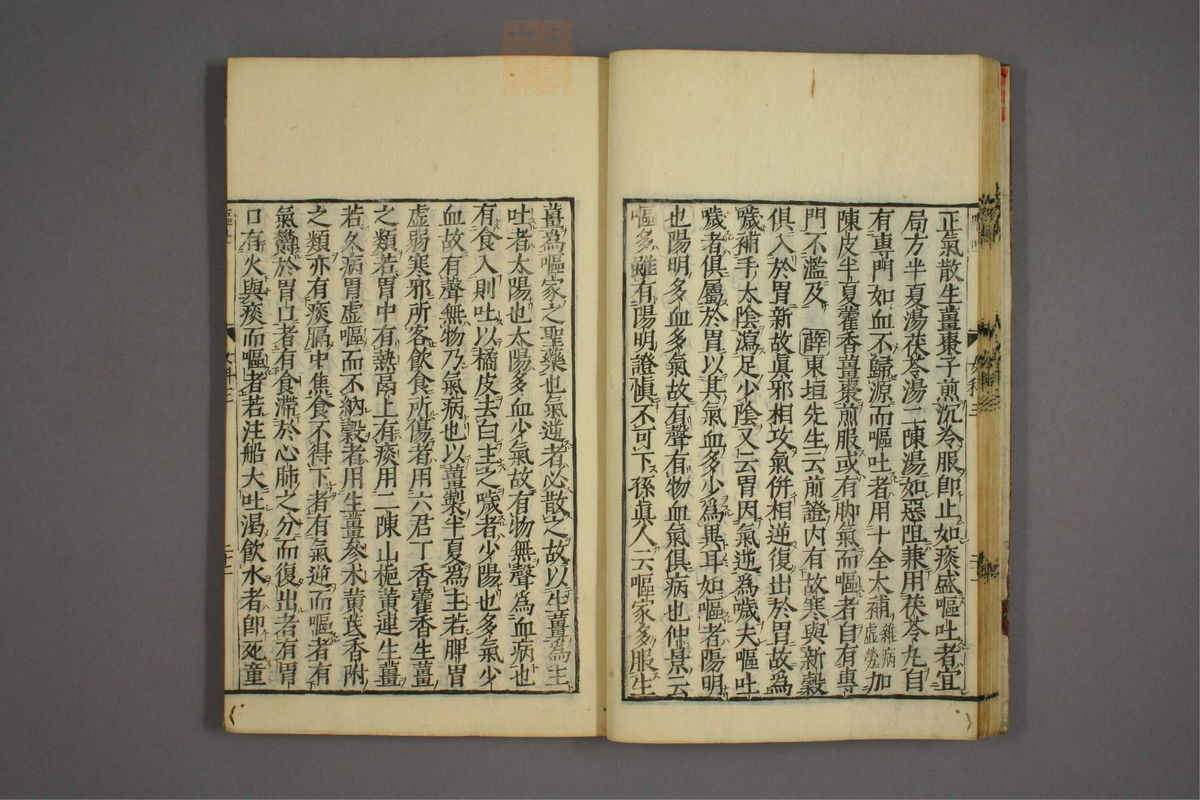 正氣散生薑棗子煎沉冷服卽止如痰盛嘔吐者宜
局方半夏湯茯苓湯二陳湯如惡阻兼用茯苓丸自
有專門如血不歸源而嘔吐者用十全大補雜病虛勞加
陳皮半夏藿香薑棗煎服或有脚氣而嘔者自有專
門不濫及 薛東垣先生云前證內有故寒與新穀
俱入於胃新故眞邪相攻氣併相逆復出於胃故為
噦補手太陰瀉足少陰又云胃因氣逆為噦夫嘔吐
噦者俱屬於胃以其氣血多少為異耳如嘔者陽明
也陽明多血多氣故有聲有物血氣俱病也仲景云
嘔多雖有陽明證愼不可下孫眞人云嘔家多服生
薑為嘔家之聖藥也氣逆者必散之故以生薑為主
吐者太陽也太陽多血少氣故有物無聲為血病也
有食入則吐以橘皮去白主之噦者少陽也多氣少
血故有聲無物乃氣病也以薑製半夏為主若脾胃
虛弱寒邪所客飲食所傷者用六君丁香藿香生薑
之類若胃中有熱膈上有痰用二陳山梔黃連生薑
若久病胃虛嘔而不納穀者用生薑參朮黃芪香附
之類亦有痰膈中焦食不得下者有氣逆而嘔者有
氣鬱於胃口者有食滯於心肺之分而復出者有胃
口有火與痰而嘔者若注船大吐渴飲水者卽死童